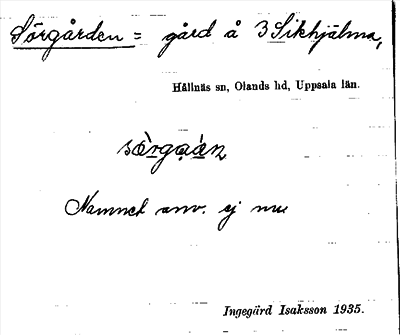 Sörgården = gård å 3 Sikhjälma,
Hållnäs sn, Olands hd, Uppsala län.
Namnet anv. ej nu
Ingegärd Isaksson 1935.